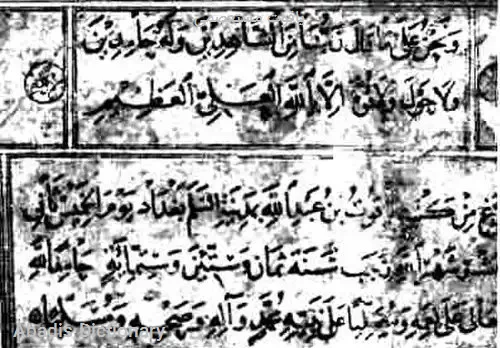 ونحن على ما قال ربنا من الشاهدين وله حامدين
ولا حول ولا قوة الا بالله العلي العظيم
من كتبه ياقوت بن عبد الله بمدينة السلم بغداد يوم الخميس ثاني
شهر الله رجب سنة ثمان وستين وستمائة حامدا لله
تعالى على نعمه ومصليا على نبيه محمد وآله وصحبه ومسلما
Abadis Dictionary